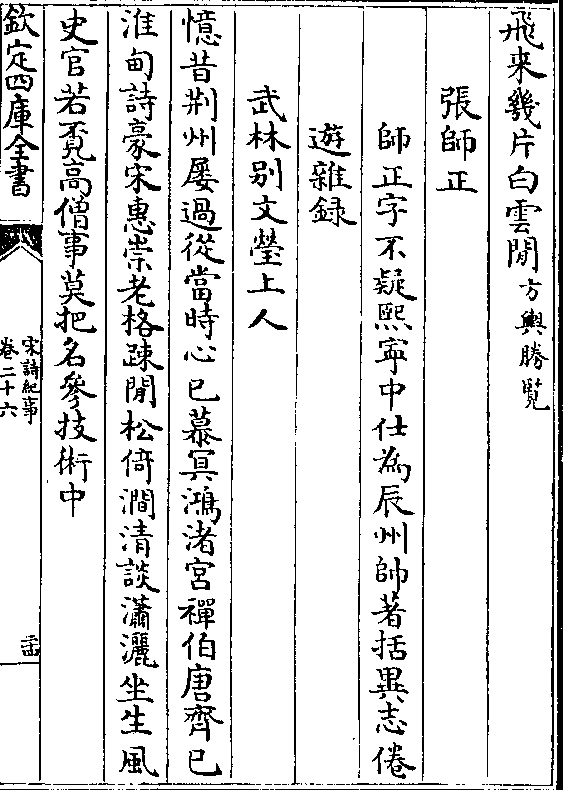 飛来幾片白雲閒方輿勝覧
張師正
師正字不疑熙寧中仕為辰州帥著括異志倦
遊雜録
武林別文瑩上人
憶昔荆州屢過從當時心已慕冥鴻渚宮禪伯唐齊已
淮甸詩豪宋惠崇老格踈閒松倚澗清談瀟灑坐生風
史官若覓高僧事莫把名參技術中
欽定四庫全書
宋詩紀事
卷二十六
二十四